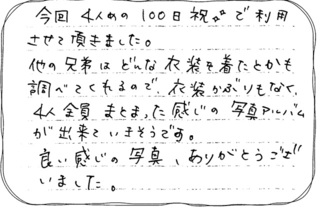 今回 4人めの 100日祝いで利用
させて頂きました。
他の兄弟はどんな衣装を着たとかも
調べてくれるので、衣装かぶりもなく、
4人全員 まとまった感じの 写真アルバム
が出来ていきそうです。
良い感じの写真、ありがとうござ
いました。